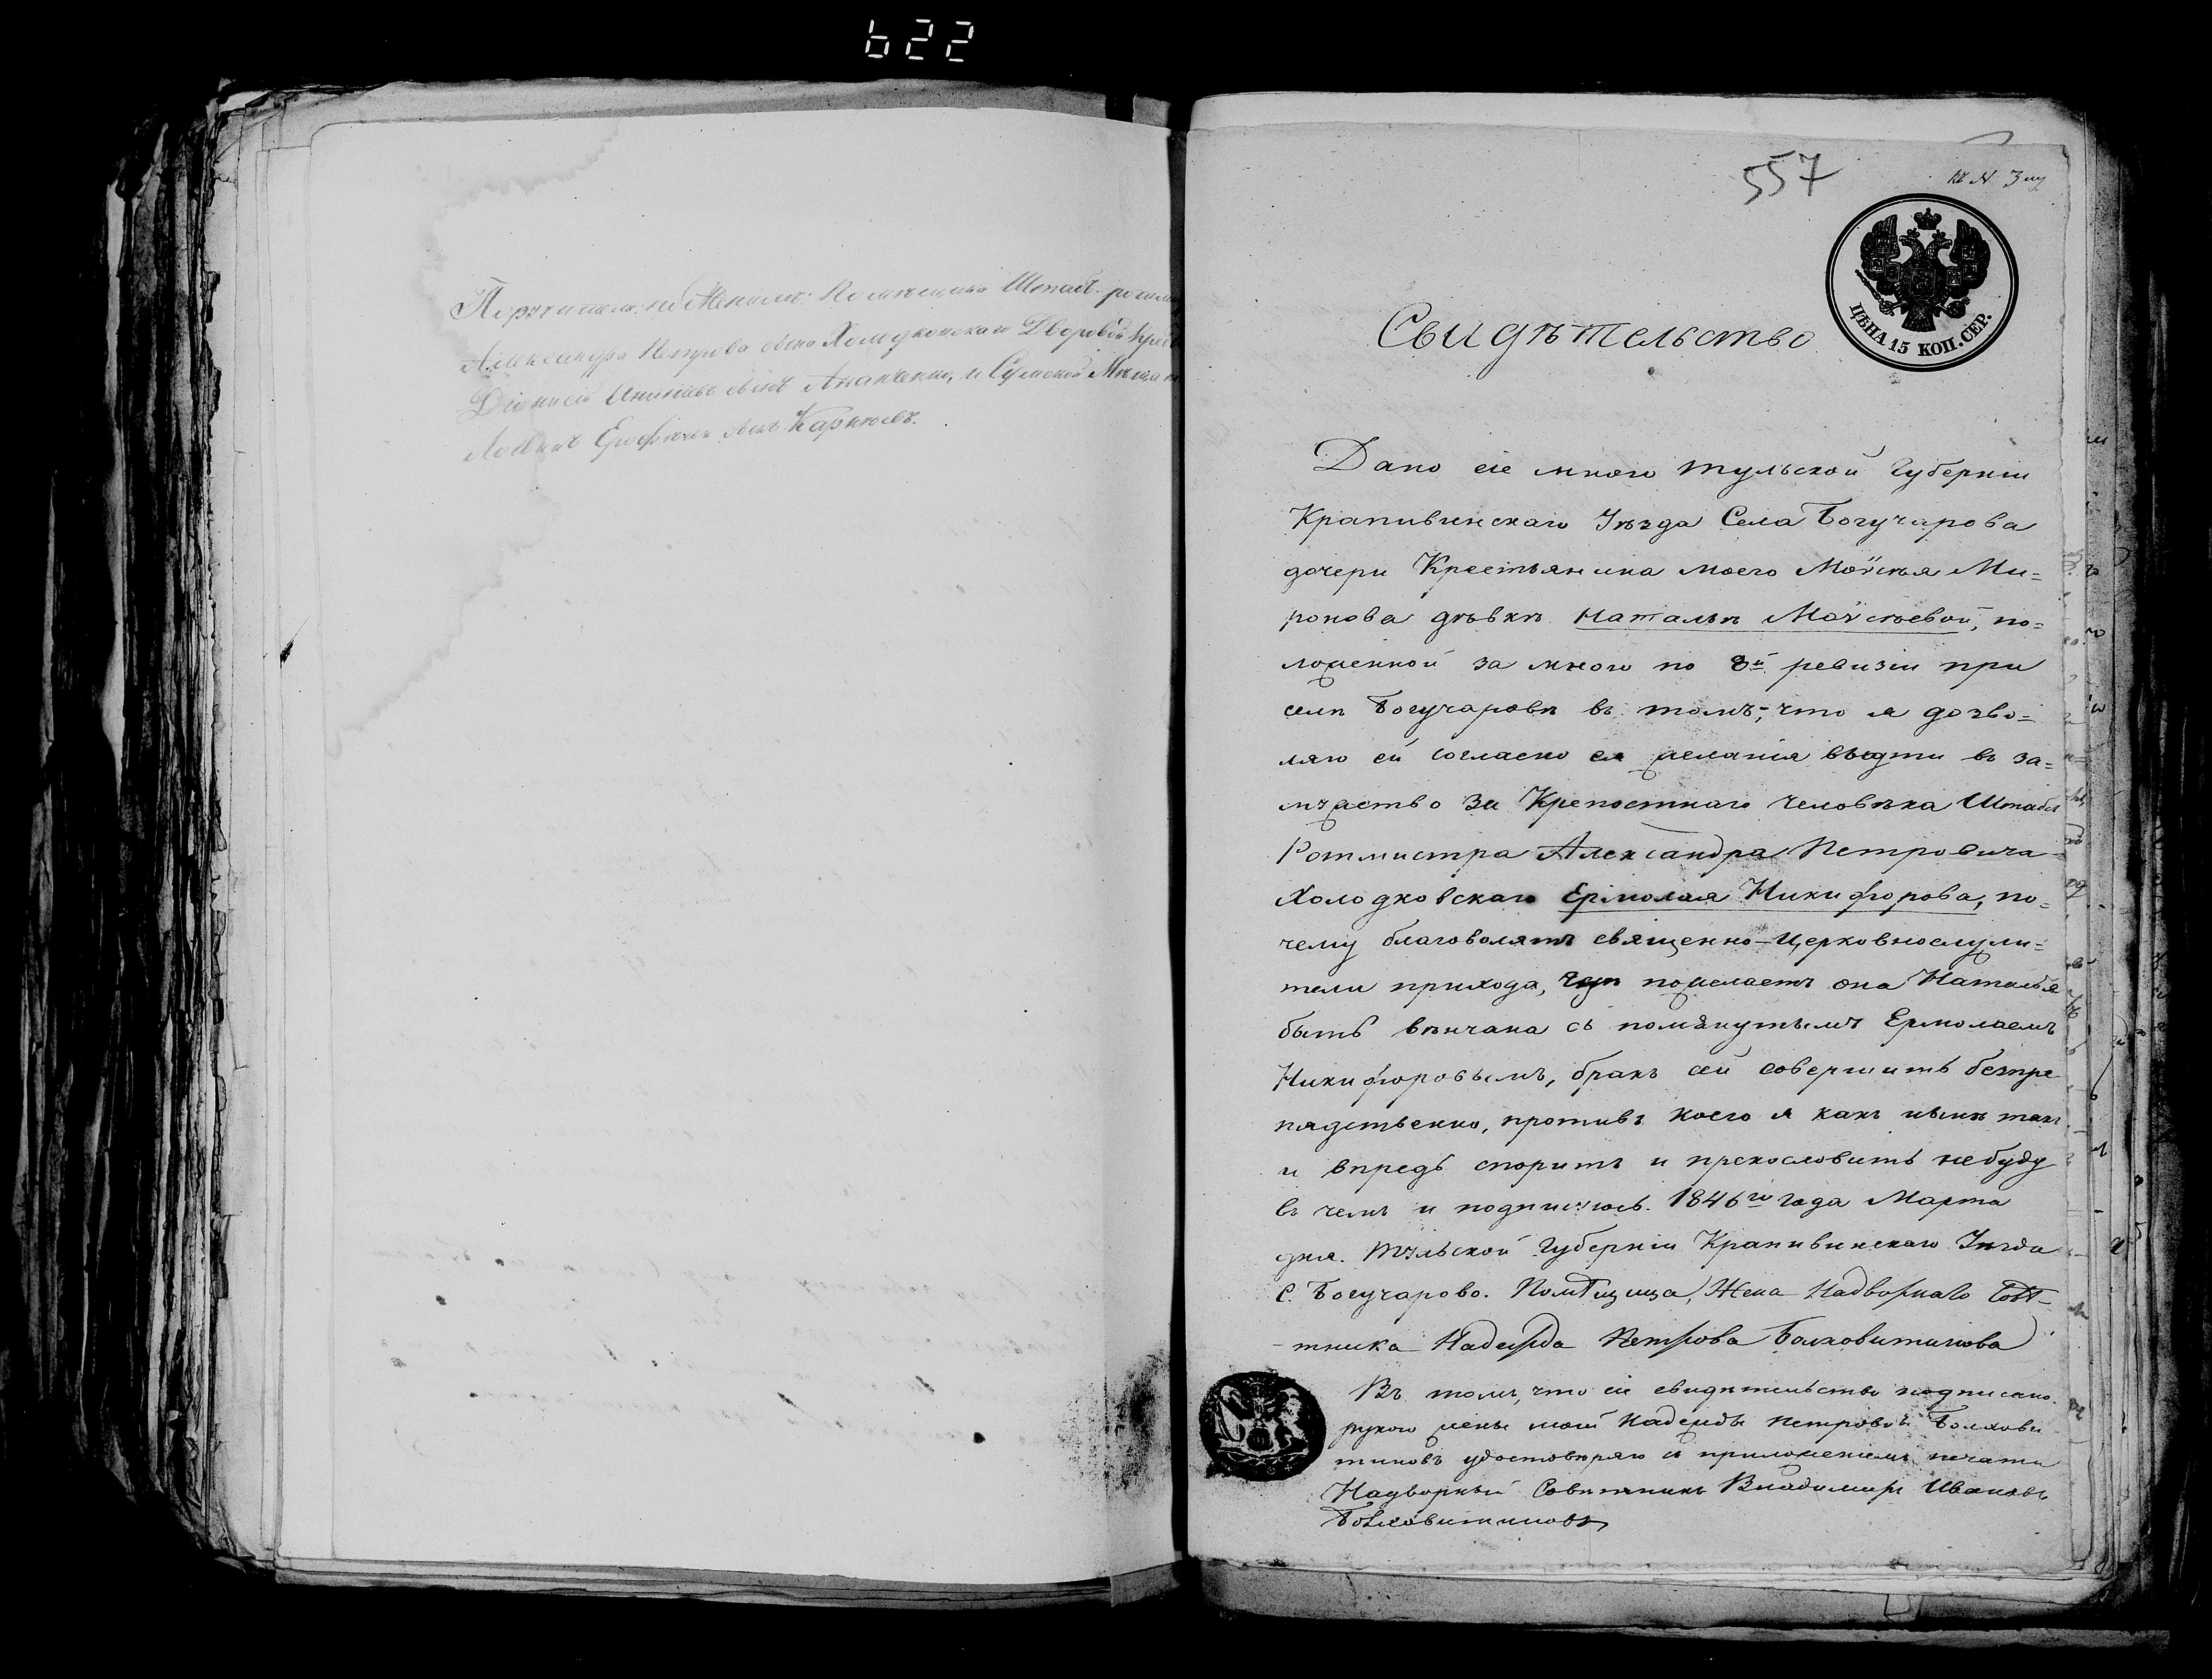 622
Поручители: по Женихѣ: Помѣщика Штабъ-ротми
Александра Петрова сына Холодковскаго Дворовой крес
Діонисій сынъ и Сумской Мѣщан
сынъ Карпѣевъ.
557
къ N. 3 му
ЦѢНА 15 КОП. СЕР.
Свидѣтельство
Дано сіе мною Тульской Губерніи
Крапивинскаго Уѣзда Села Богучарова
дочери Крестьянина моего Моѵсѣя Ми=
ронова дѣвкѣ Натальѣ Моѵсѣевой, по=
ложенной за мною по 8й ревизіи при
селѣ Богучаровѣ въ томъ, что я дозво=
ляю ей согласно ея желанія выдти въ за=
мужство за Крепостнаго человѣка Штабъ
Ротмистра Александра Петровича
Холодковскаго Ермолая Никифорова, по=
чему благоволятъ священно-церковнослужи=
тели прихода, гдѣ пожелаетъ она Наталья
быть вѣнчана съ помянутымъ Ермолаемъ
Никифоровымъ, бракъ сей совершить безпре
пядственно, противъ коего я какъ нынѣ такъ
и впредь споритъ и прекословить небуду
въ чемъ и подпишюсь. 1846го года Марта
дня. Тульской Губерніи Крапивинскаго Уѣзда
С. Богучарово. Помѣщица, Жена Надворнаго Совѣ-
-тника Надежда Петрова Болховитинова
Въ томъ, что сіе свидѣтельство подписано
рукою жены моей Надежды Петровой Болхови
тиновъ удостовѣряю съ приложеніемъ печати
Надворный Совѣтникъ Владимиръ Ивановъ
Болховитиновъ